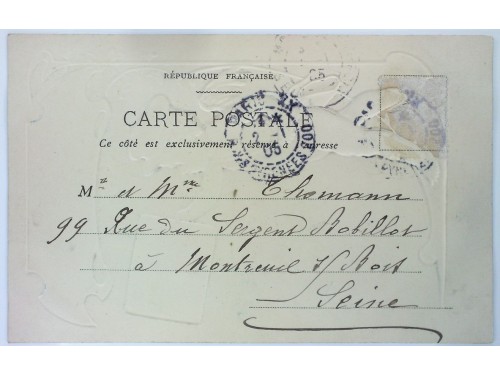 RÉPUBLIQUE FRANÇAISE
CARTE POSTALE
Ce côté est exclusivement réservé à l'adresse
PARIS XX
05
R. DES PYRENEES
Mr et Mme Thomann
99 Rue du Sergent Bobillot
à Montreuil s/Bois
Seine